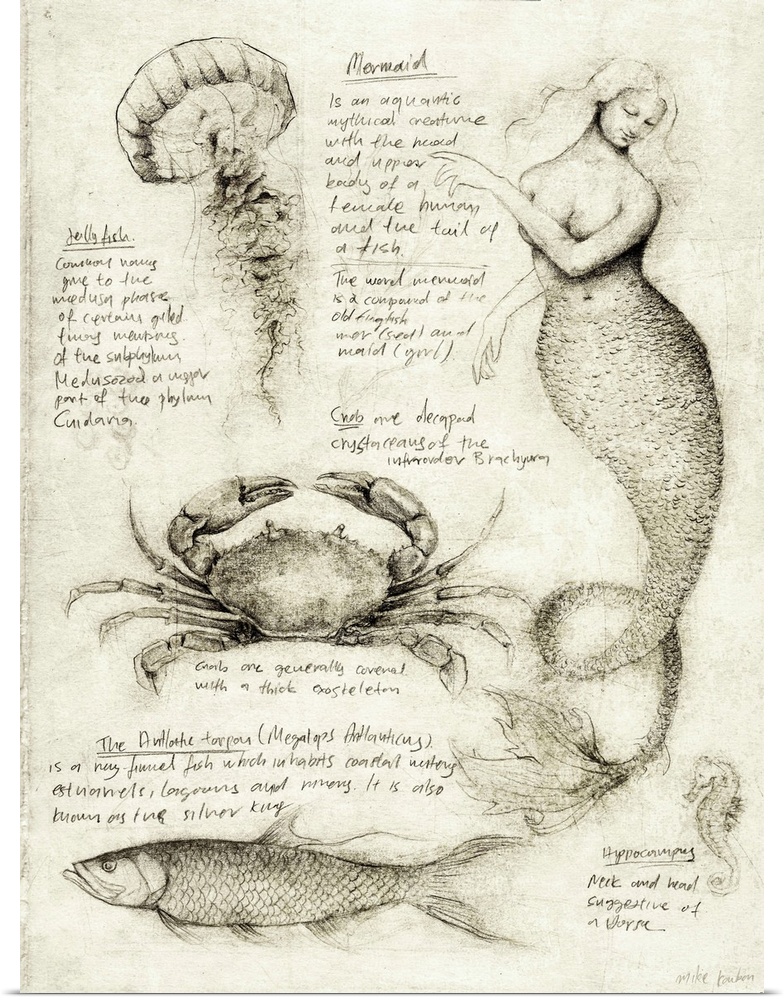 Mermaid
Is an aquantic
mythical creature
with the head
and upper
body of a
female human
and the tail of
a fish.
The word mermaid
is a compound of the
old English
mer (sea) and
maid (girl).
Jelly fish.
Common names
give to the
medusa phase
of certain
members.
Of the subphylum
Medusozoa a major
part of the phylum
Cnidaria.
Crab are decapod
crystaceans of the
infraorder Brachyura
Crab are generally covered
with a thick exosteleton
The Atlantic tarpon (Megalops Atlanticus).
is a ray-finned fish which inhabits coastal waters
estuaries, lagoons and rivers. It is also
known as the silver king
Hippocampus
Neck and head
suggestive of
a Horse
mike